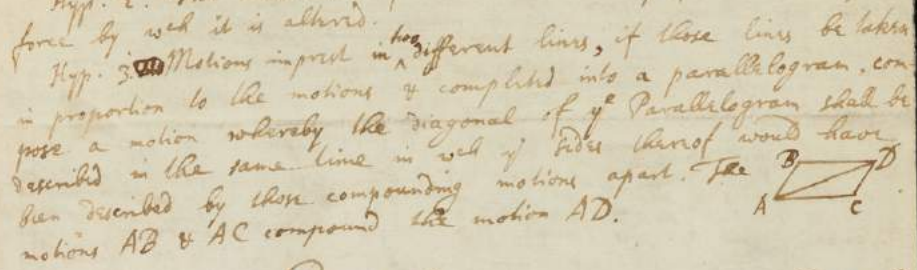 Hyp. 2.
force by wch it is altered.
Hyp. 3. Motions imprest in two different lines, if those lines be taken
in proportion to the motions & completed into a parallelogram, com-
pose a motion whereby the diagonal of ye Parallelogram shall be
described in the same time in wch ye sides thereof would have
been described by those compounding motions apart. The
motions AB & AC compound the motion AD.
B D
A C